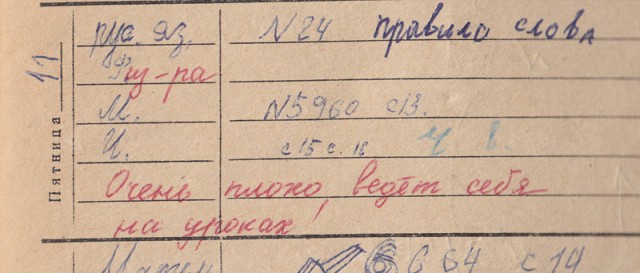 Пятница 17
рус. яз. N 24 правило слова
Физ-ра
М. N5960 с13.
И. с15 с. 18 Ч. в.
Очень плохо ведёт себя
на уроках!
Матем 664 с 14